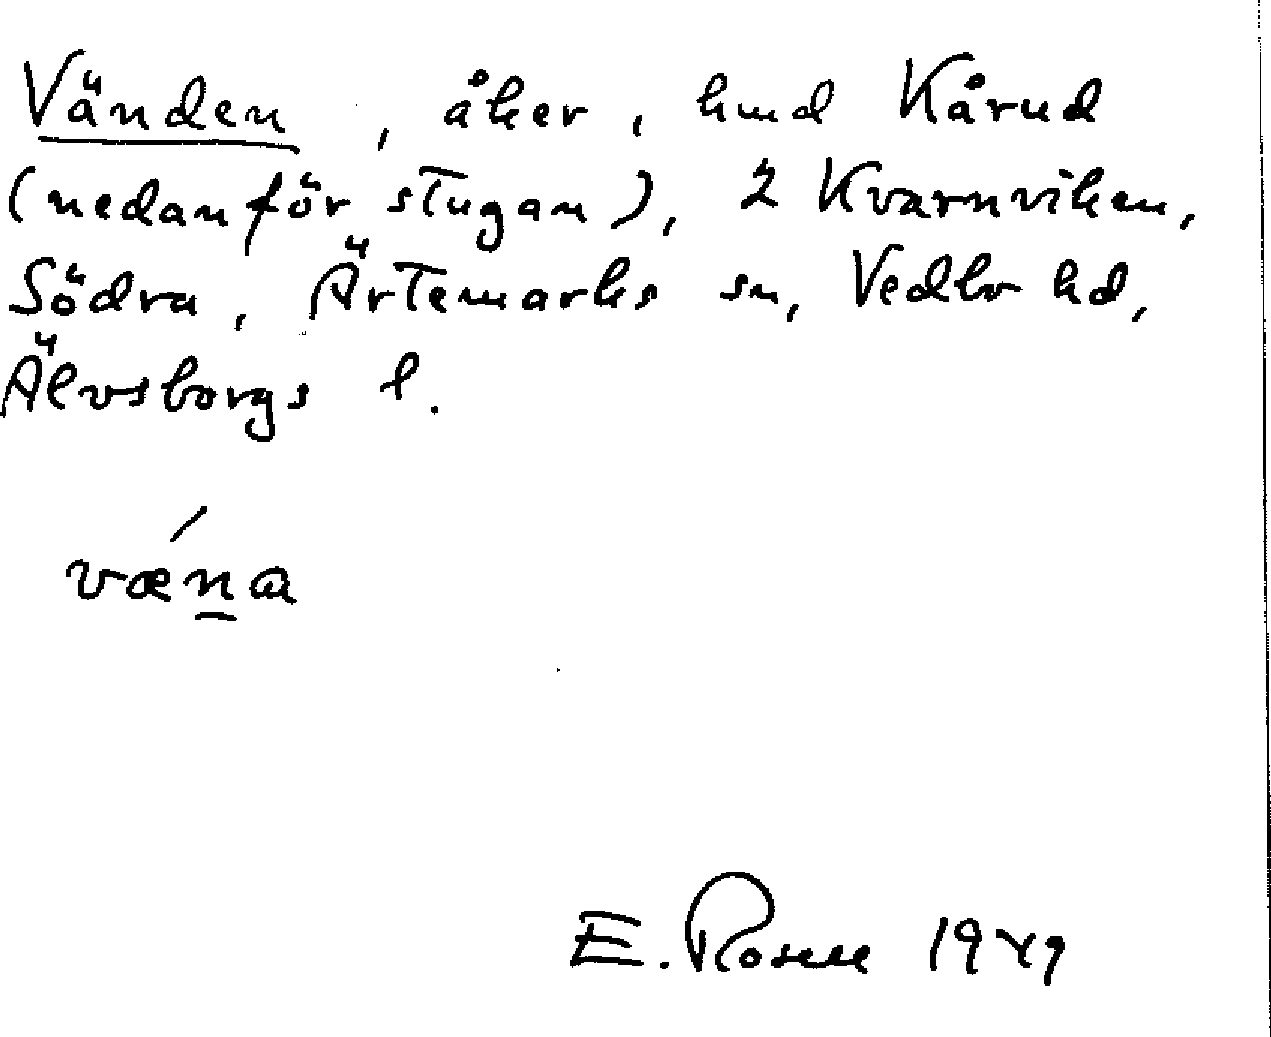 Vänden, åker, hmd Kårud
(nedanför stugan), 2 Kvarnviken,
Södra, Ärtemarks sn, Vedbo hd,
Älvsborgs l.
vǽn̲a
E. Rosell 1949